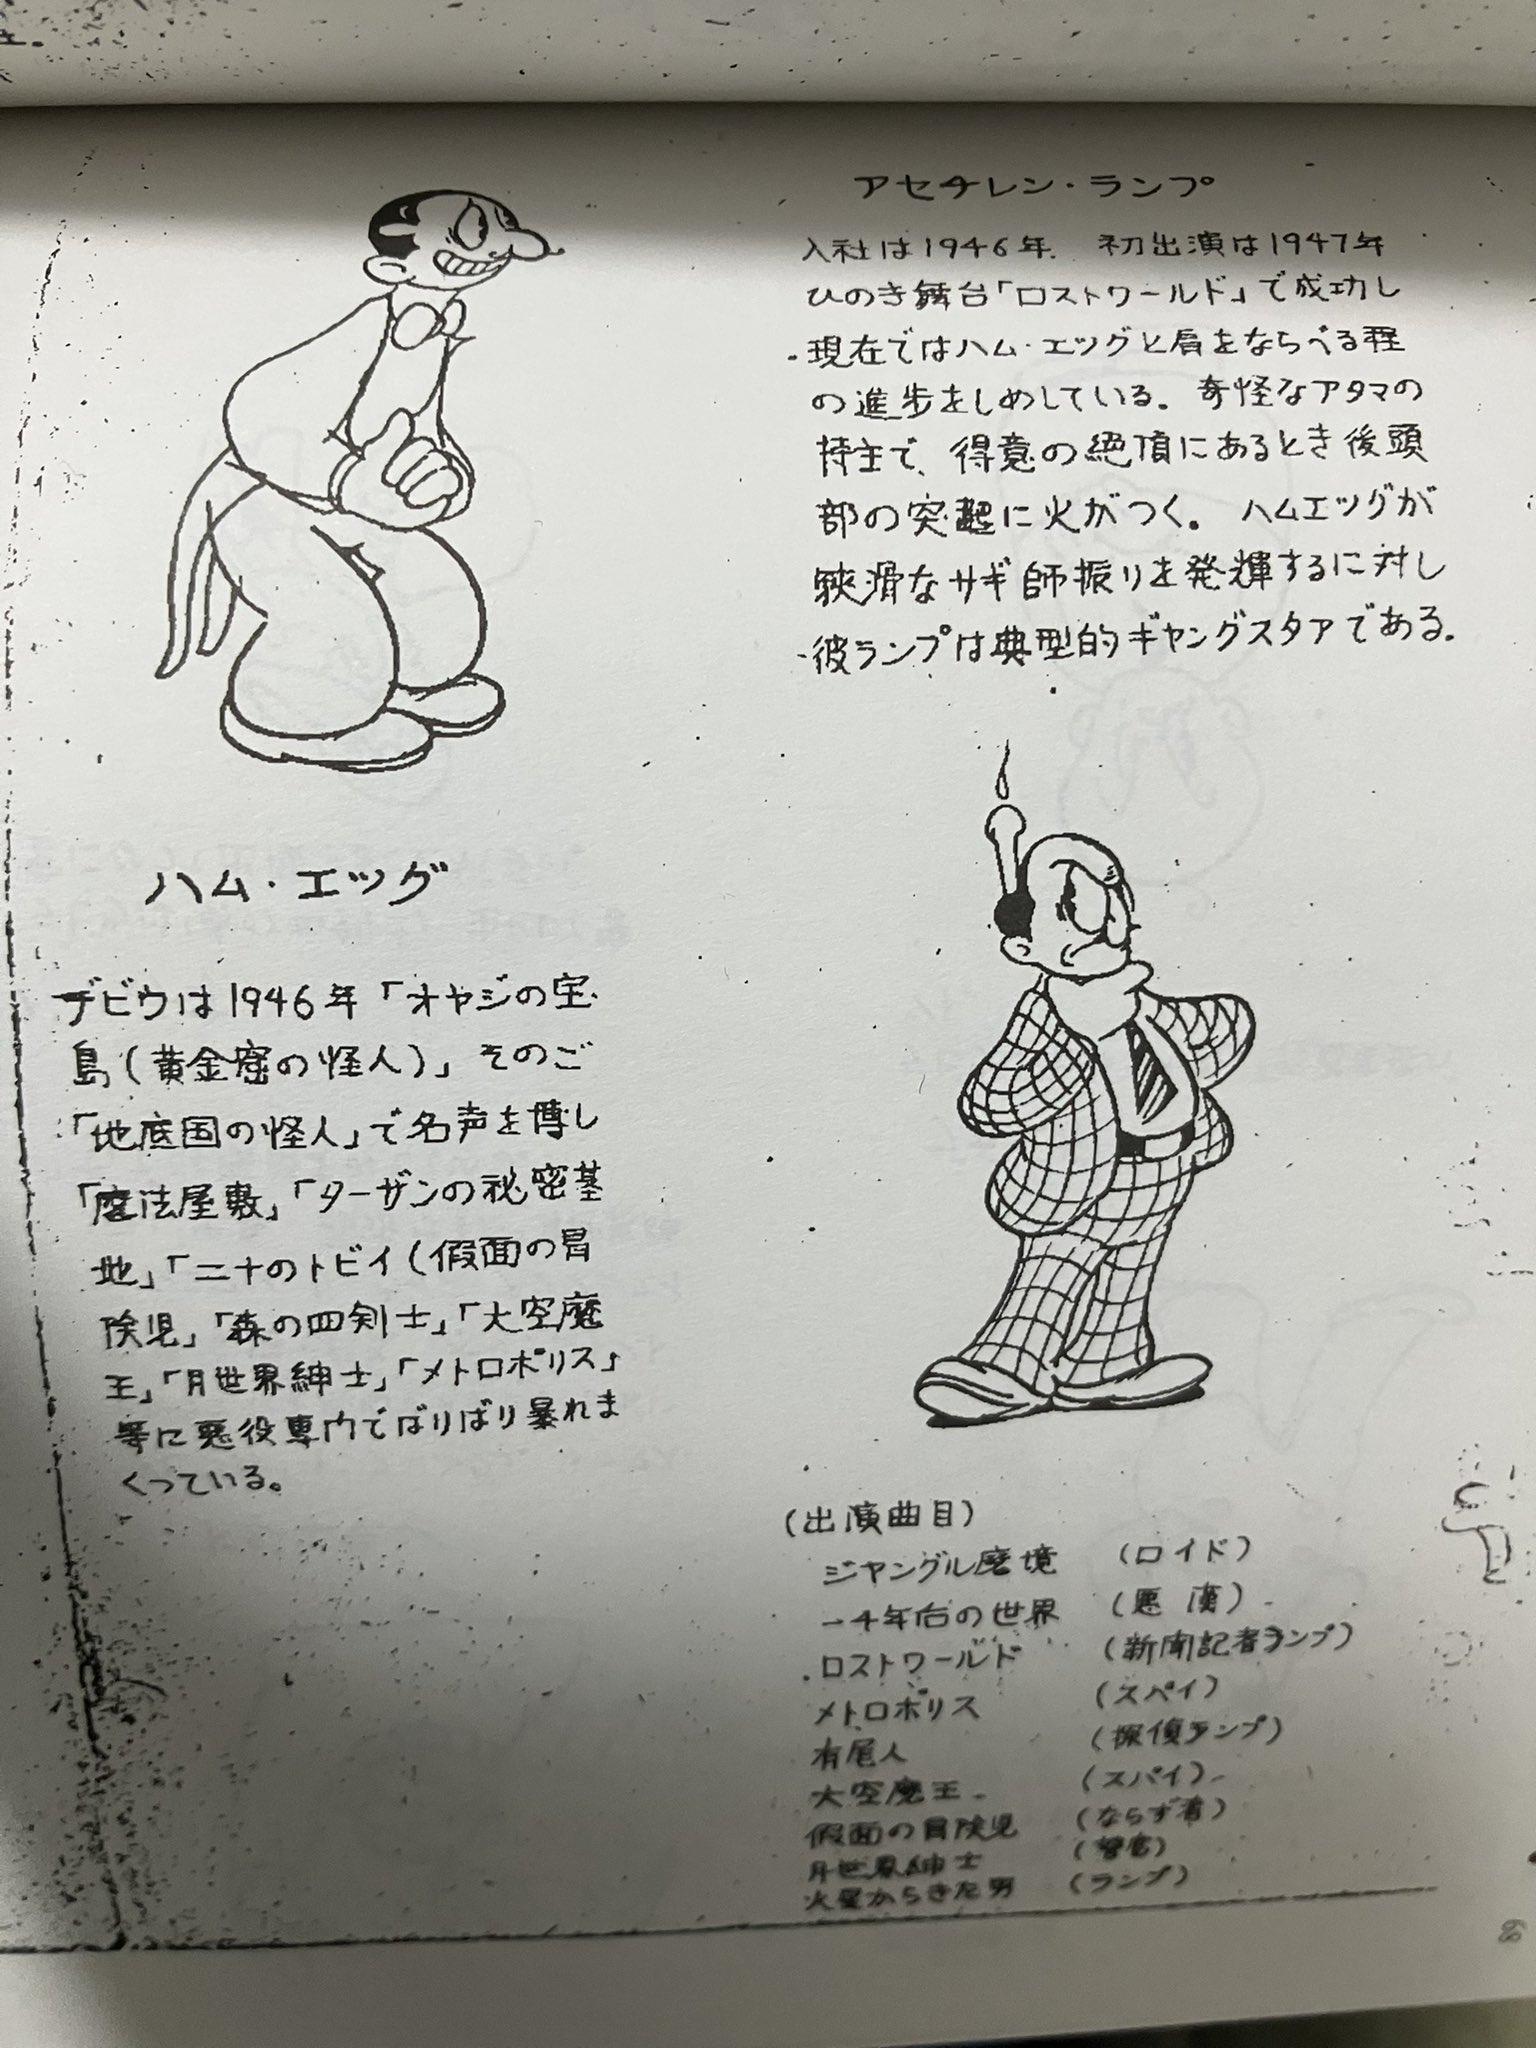 ハム・エッグ
デビウは1946年「オヤジの宝
島(黄金窟の怪人)」そのご
「地底国の怪人」で名声を博し
「魔法屋敷」「ターザンの秘密基
地」「二十のトビイ(假面の冒
険児」「森の四剣士」「大空魔
王」「月世界紳士」「メトロポリス」
等に悪役専門でばりばり暴れま
くっている。
アセチレン・ランプ
入社は1946年. 初出演は1947年
ひのき舞台「ロストワールド」で成功し
現在ではハム・エッグと肩をならべる程
の進歩をしめしている。奇怪なアタマの
持主で、得意の絶頂にあるとき後頭
部の突起に火がつく。ハムエッグが
狡滑なサギ師振りを発輝するに対し
彼ランプは典型的ギャングスタアである.
(出演曲目)
ジャングル魔境 (ロイド)
一千年后の世界 (悪漢)
ロストワールド (新聞記者ランプ)
メトロポリス (スパイ)
有尾人 (探偵ランプ)
大空魔王 (スパイ)
假面の冒険児 (ならず者)
月世界紳士 (警官)
火星からきた男 (ランプ)